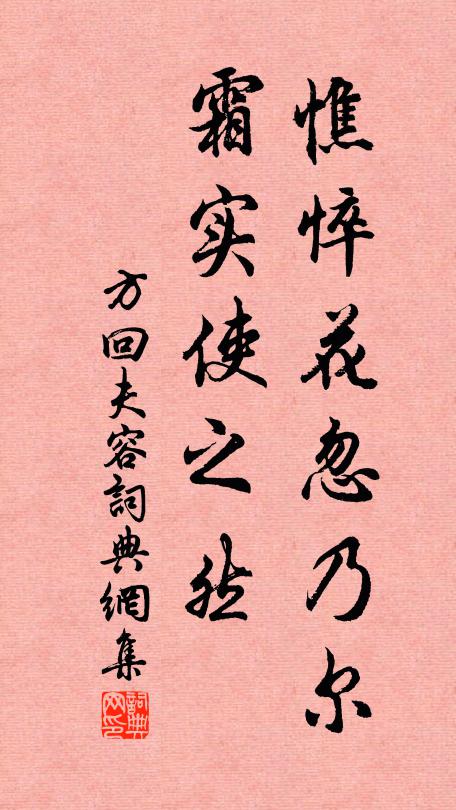 憔悴花忽乃尔
霜实使之然
方回夫容詞典網集
詞典网印